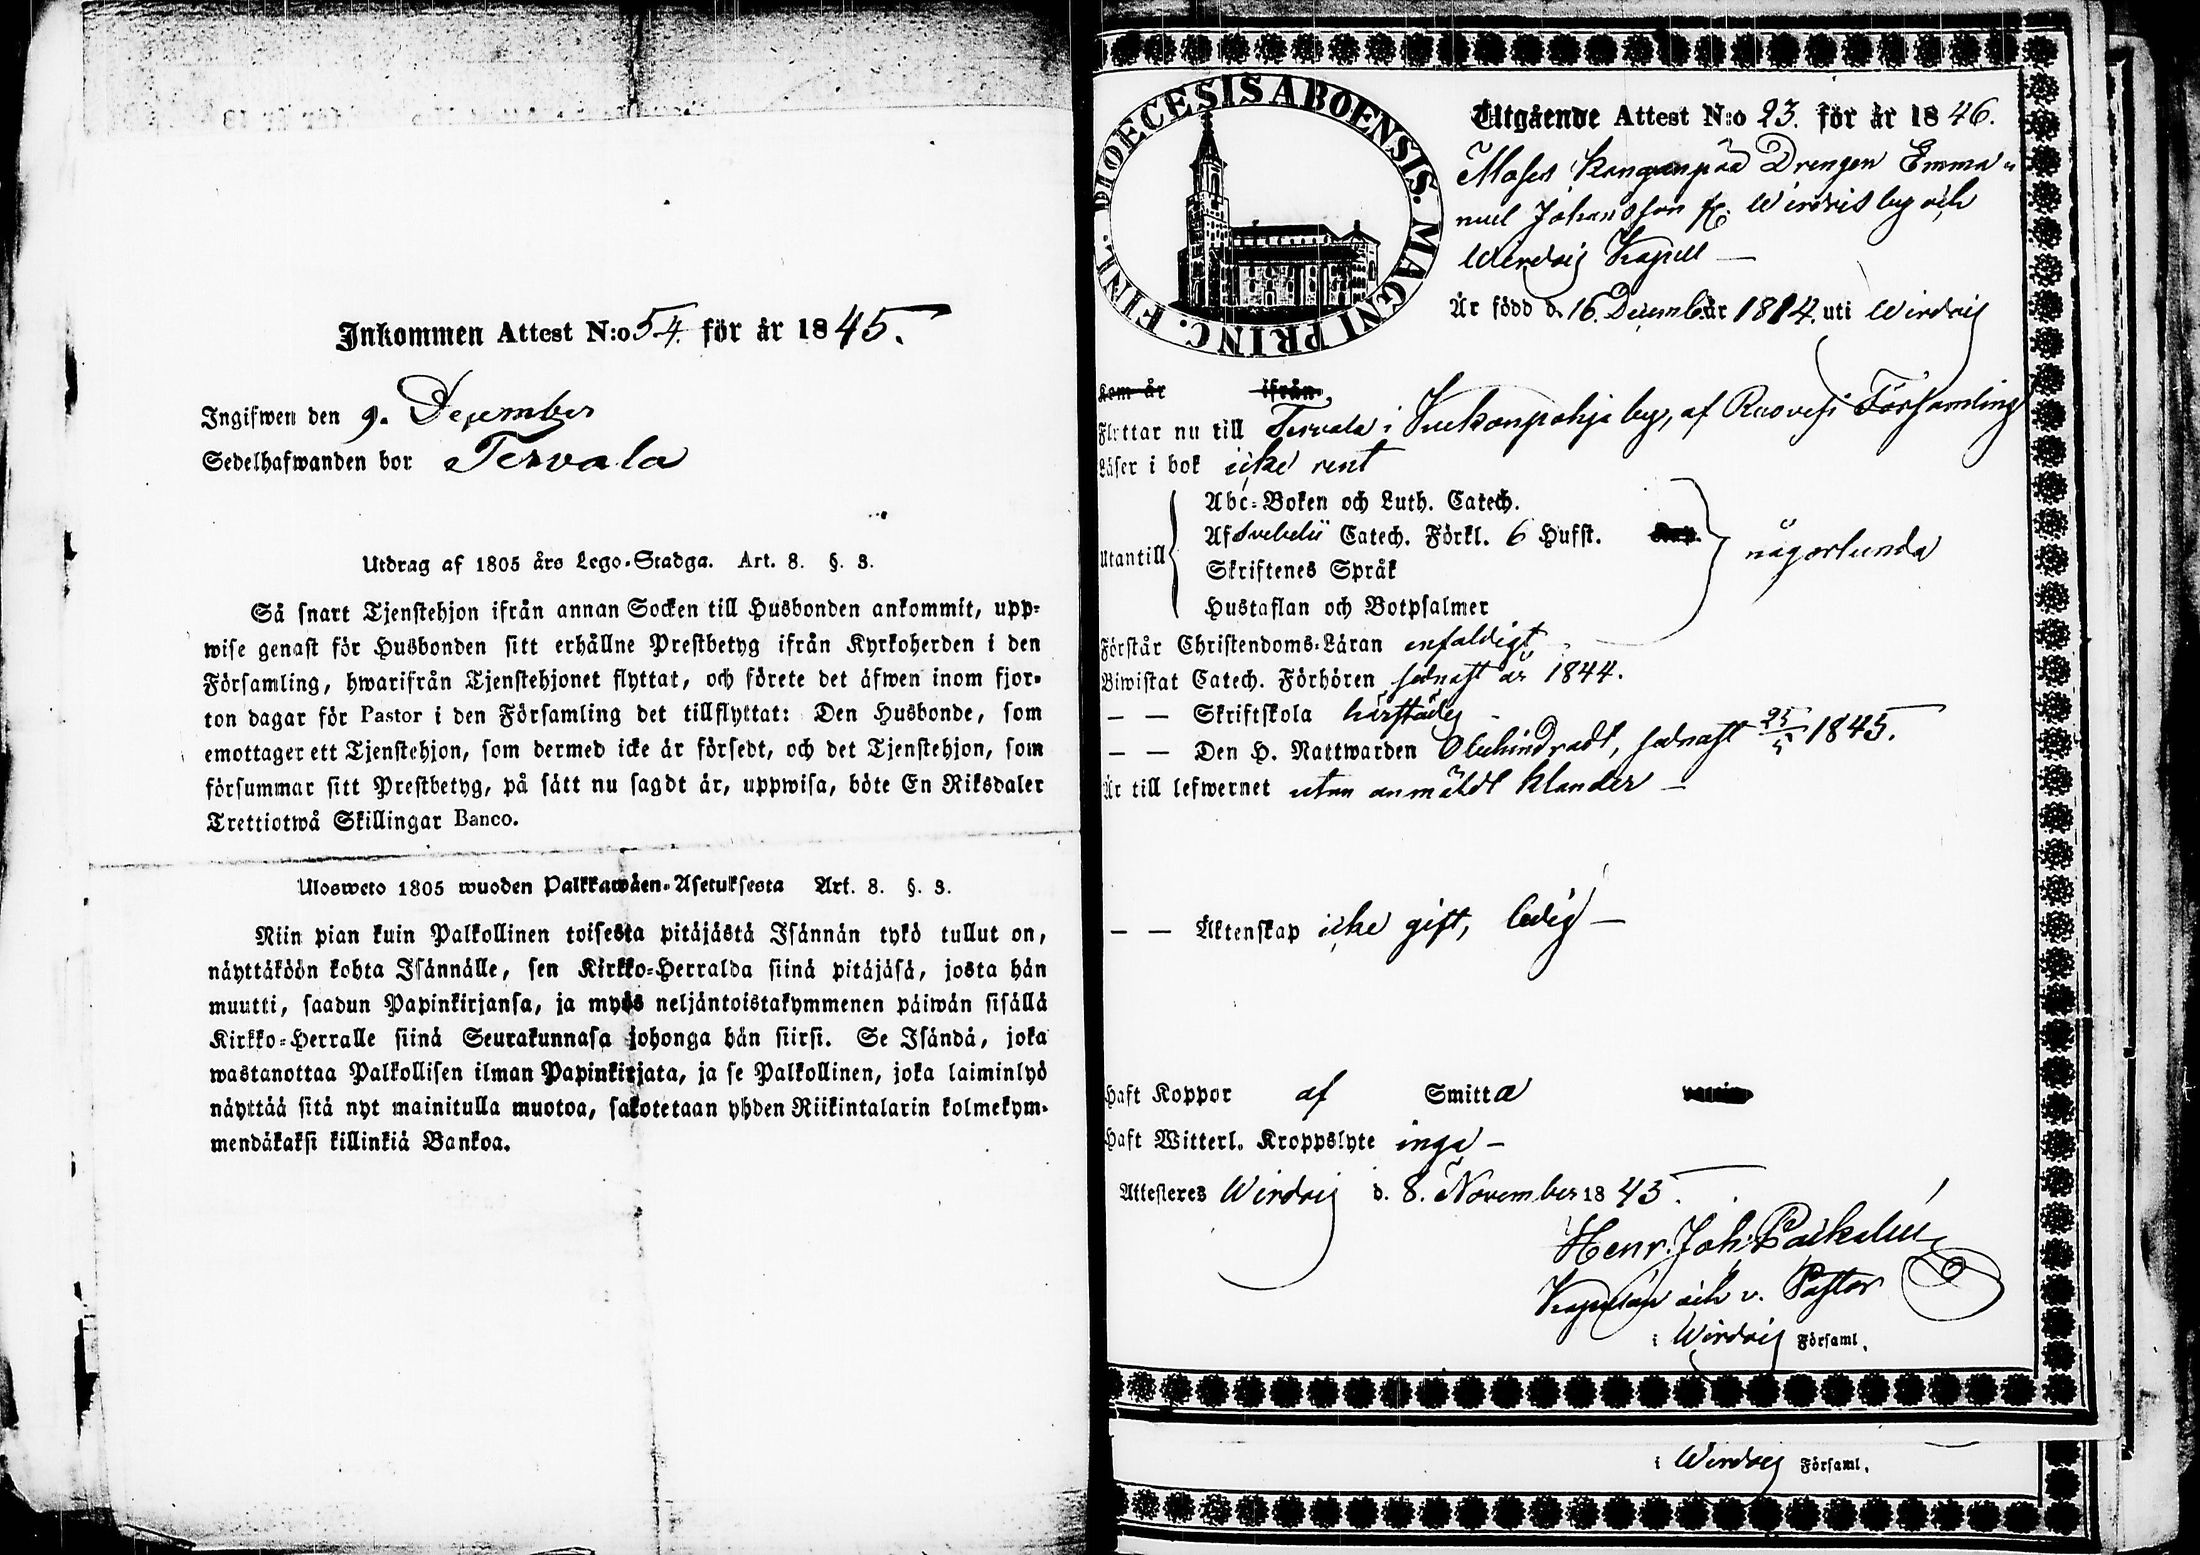 Inkommen Attest N:o 54. för år 1845.
Ingifwen den 9. December
Sedelhafwanden bor Tervala
Utdrag af 1805 års Lego-Stadga. Art. 8. §. 3.
Så snart Tjenstehjon ifrån annan Socken till Husbonden ankommit, upp-
wise genast för Husbonden sitt erhållne Prestbetyg ifrån Kyrkoherden i den
Församling, hwarifrån Tjenstehjonet flyttat, och förete det äfwen inom fjor-
ton dagar för Pastor i den Församling det tillflyttat: Den Husbonde, som
emottager ett Tjenstehjon, som dermed icke är försedt, och det Tjenstehjon, som
försummar sitt Prestbetyg, på sätt nu sagdt är, uppwisa, böte En Riksdaler
Trettiotwå Skillingar Banco.
Ulosweto 1805 wuoden Palkkawäen-Asetuksesta Art. 8. §. 3.
Niin pian kuin Palkollinen toisesta pitäjästä Isännän tykö tullut on,
näyttäköön kohta Isännälle, sen Kirkko-Herralda siinä pitäjäsä, josta hän
muutti, saadun Papinkirjansa, ja myös neljäntoistakymmenen päiwän sisällä
Kirkko-Herralle siinä Seurakunnasa johonga hän siirsi. Se Isändä, joka
wastanottaa Palkollisen ilman Papinkirjata, ja se Palkollinen, joka laiminlyö
näyttää sitä nyt mainitulla muotoa, sakotetaan yhden Riikintalarin kolmekym-
mendäkaksi killinkiä Bankoa.
DIOECESIS ABOENSIS. MAGNI PRINC. FINL.
Utgående Attest N:o 23. för år 1846.
Moses Kanganpää Drengen Emma-
nuel Johansson fr. Wirdois by och
Wirdois Kapell —
Är född d. 16. Decemb. år 1814. uti Wirdois
Kom år ifrån
Flyttar nu till Tervala i by, af Ruovesi Församling
Läser i bok icke rent
Abc-Boken och Luth. Catech.
Af Svebelii Catech. Förkl. 6 Hufst.
Utantill Skriftenes Språk någorlunda
Hustaflan och Botpsalmer
Förstår Christendoms-Läran enfaldigt
Biwistat Catech. Förhören sednast år 1844.
— — Skriftskola härstädes
— — Den H. Nattwarden Obehindradt, sednast 25/5 1845.
Är till lefwernet utan anmäldt klander —
— — Äktenskap icke gift, ledig —
Haft Koppor af Smitta
Haft Witterl. Kroppslyte inga —
Attesteres Wirdois d. 8. November 1845.
Henr. Joh.
Kapellan och v. Pastor
i Wirdois Församl.
i Wirdois Församl.